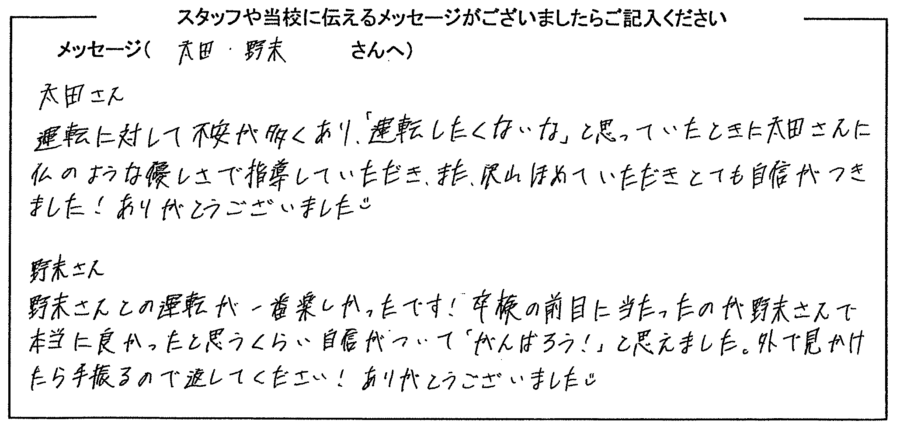 スタッフや当校に伝えるメッセージがございましたらご記入ください
メッセージ( 太田・野末 さんへ)
太田さん
運転に対して不安が多くあり、「運転したくないな」と思っていたときに太田さんに
仏のような優しさで指導していただき、また、沢山ほめていただきとても自信がつき
ました!ありがとうございました☺
野末さん
野末さんとの運転が一番楽しかったです!卒検の前日に当たったのが野末さんで
本当に良かったと思うくらい自信がついて「がんばろう!」と思えました。外で見かけ
たら手振るので返してください!ありがとうございました☺